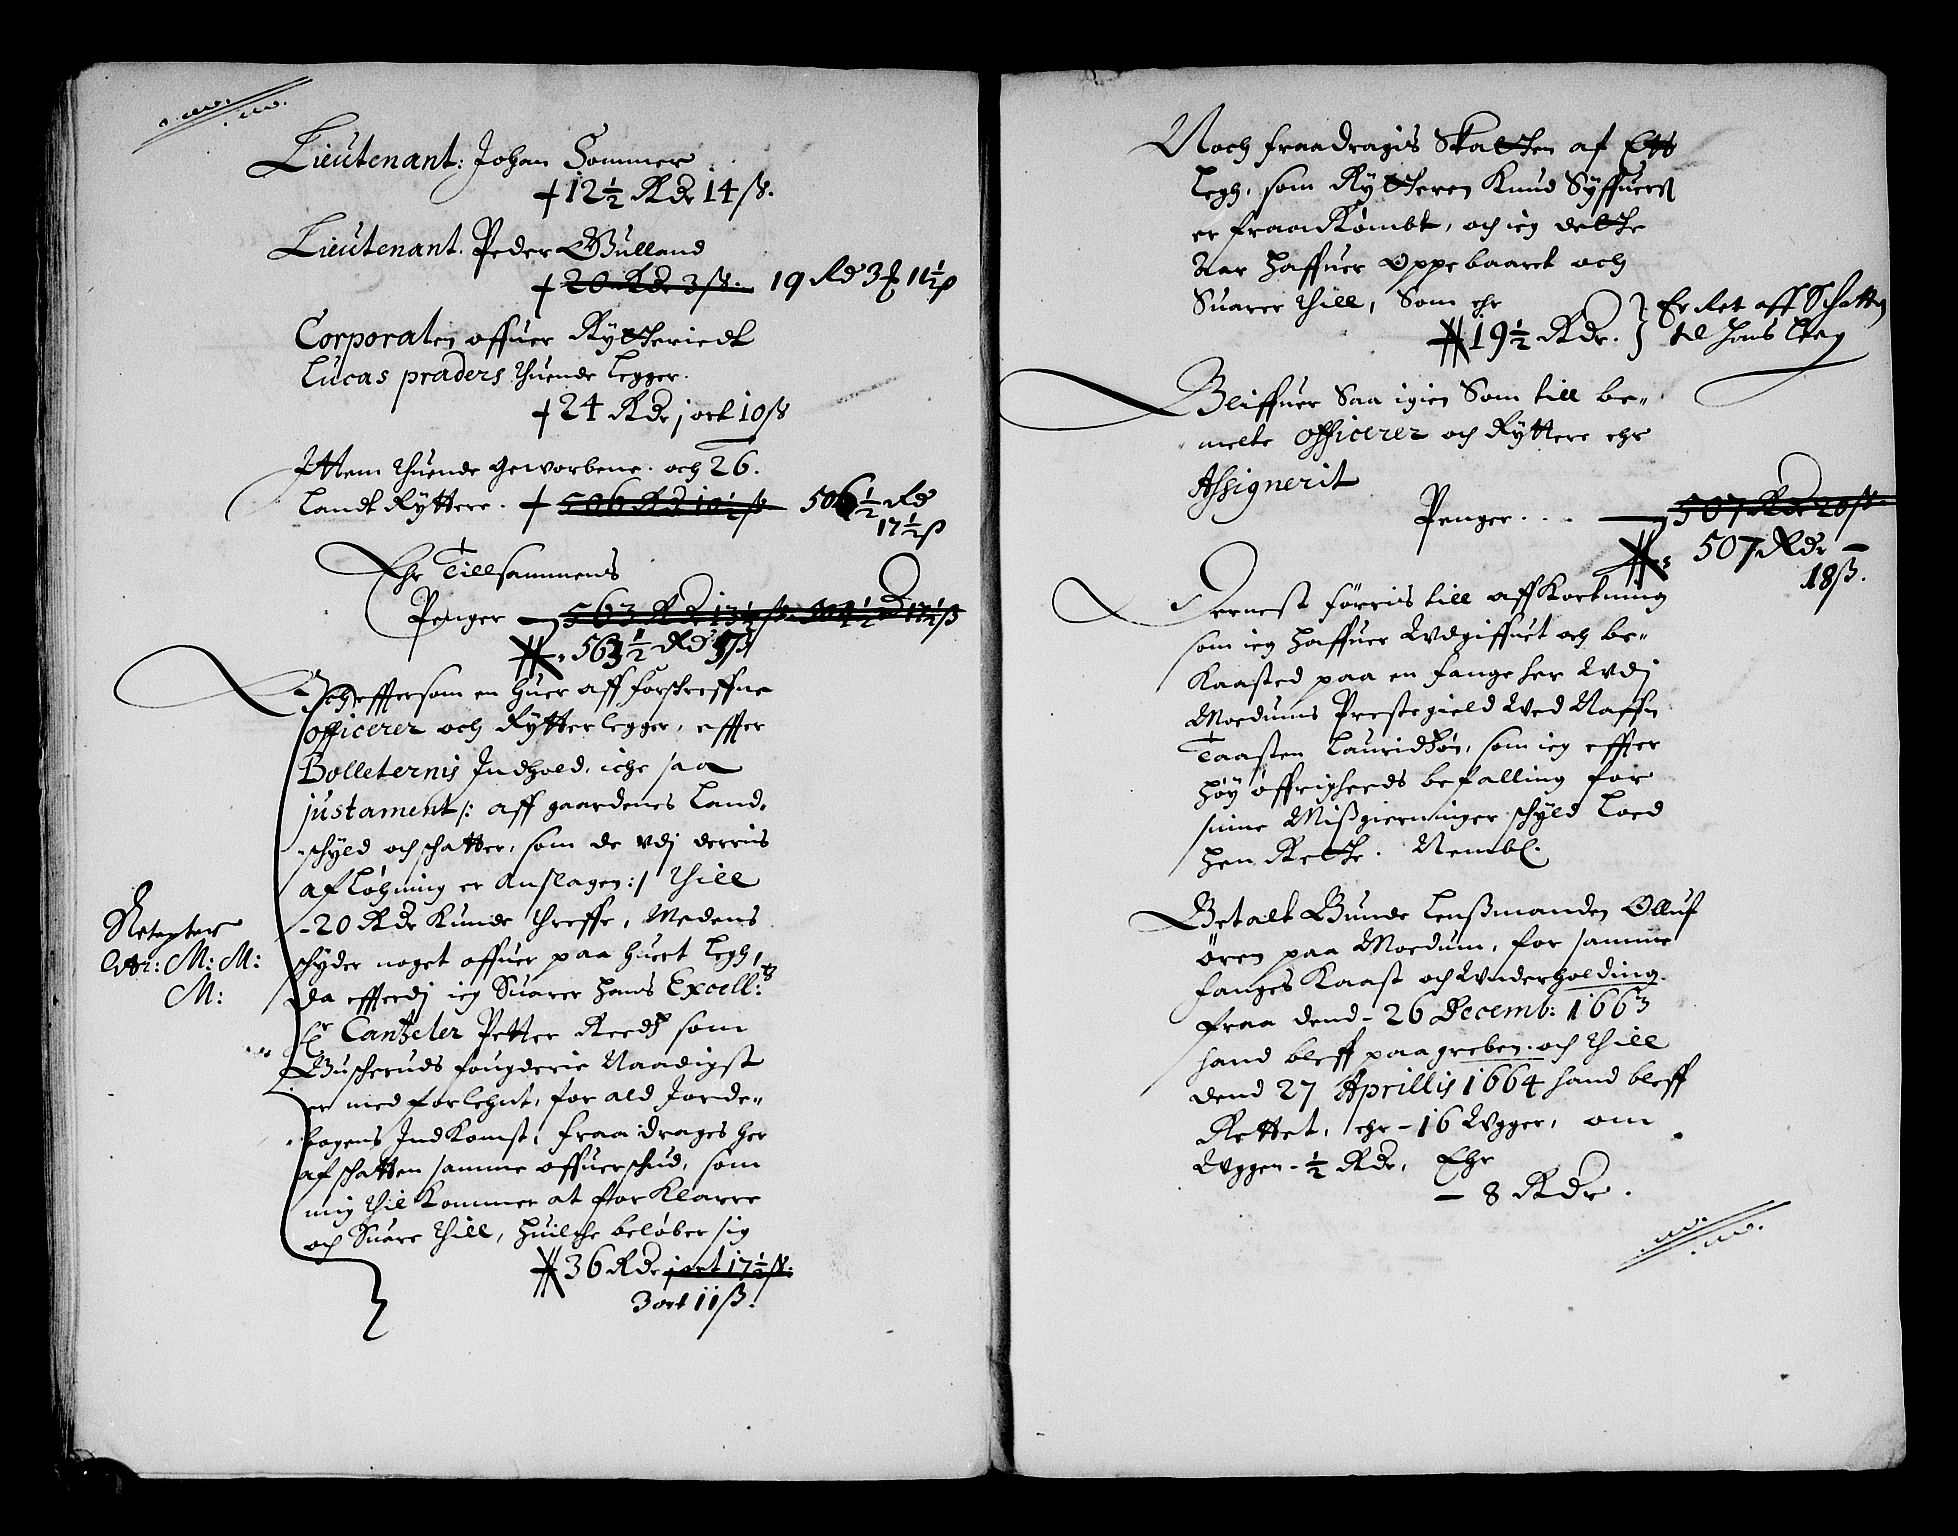 Lieutenant: Johan Sommer
+ 12½ Rdr 14 ß.
Lieutenant. Peder Gulland
+ 20 Rdr 3 ß. 19 Rd 3 11½ß
Corporalen offuer Rytteriedt
Lucas praders thuende Legger.
+ 24 Rdr j ort 10 ß
Ittem thuende Geworbene. och 26.
Landt Ryttere. + 506 Rd 10½ ß 506½ Rd
17½ß
Ehr Tillsammens
Penger 563 Rd 13½ ß
563½ Rd
Och effter som en huer aff forschreffne
officerer och Rytter legger, effter
Bolleternis Indhold, iche saa
justament /: aff gaardenes Land-
schyld och schatter, som de vdj derris
afløhning er Anslagen :/ thill
20 Rdr Kunde threffe, Medens
schyder noget offuer paa huert Legh,
da efftterdj ieg Suarer hans Excell:
Hr Cantzeler Petter Reedtz som
Buscheruds fougderie Naadigst
er med forlehnt, for ald Jorde-
bogens Ind Komst, fraa drages her
af schatten samme offuerschud, som
mig thil Kommer at for Klarre
och Suare thill, huilche beløber sig
36 Rdr j ort 17½ ß.
3 ort 11 ß.
M: M:
M:
Noch fraadragis Skatten af Ett
Legh, som Rytteren Knud Syffuers
er fraand Kombt, och ieg dette
Aar haffuer Oppebaaret och
Suarer thill, Som ehr
19½ Rdr. } Er Ret aff Schatten
Bliffuer Saa igien Som till be-
melte officerer och Ryttere ehr
Assignerit
Penger . . . 507 Rdr 20 ß.
507 Rdr
18 ß.
Dernest førris till aff Kortning
som ieg haffuer Udgiffuet och be-
Kaasted paa en fange her Udj
Modums Prestegield Ved Naffn
Taasten Lauridtzøn, som ieg effter
høy øffrigheeds befalling for
sine Mißgierninger schyld Loed
hen Rette. Nembl.
Betalt Bunde Lenßmanden Olluf
Øren paa Modum, for samme
fanges Kaast och Underholding
fraa dend 26 Decemb: 1663
hand bleff paagreben och thill
dend 27 Aprillis 1664 hand bleff
Rettet, ehr 16 Ugger, om
Uggen ½ Rdr, Ehr
8 Rdr.